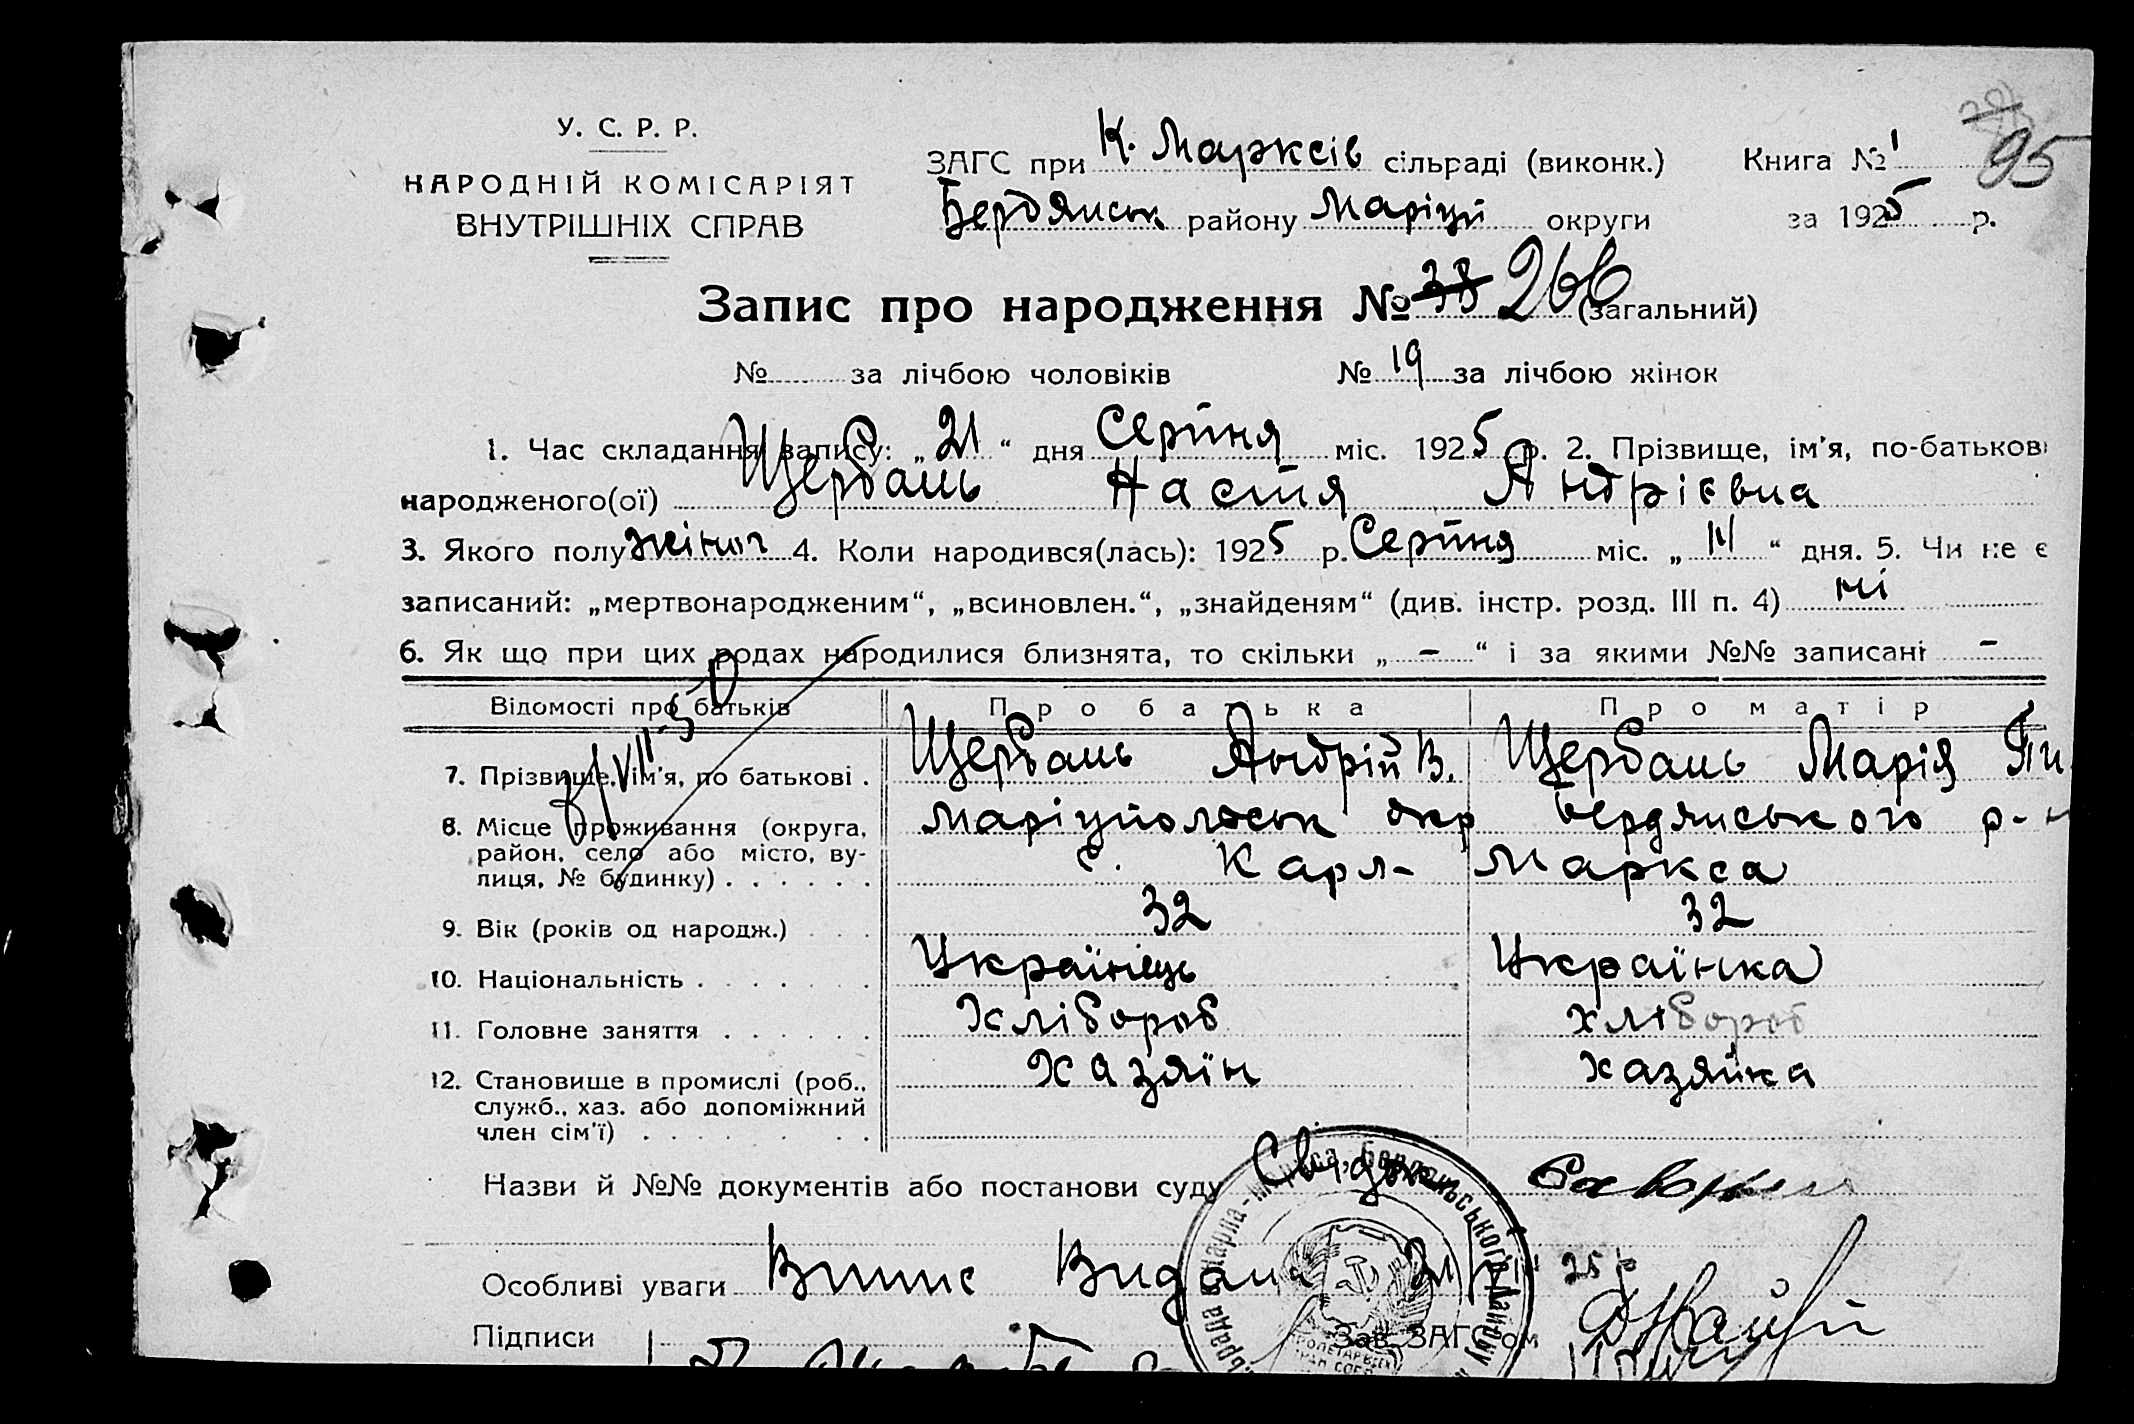 95
У. С. Р. Р.
НАРОДНІЙ КОМІСАРІЯТ
ВНУТРІШНІХ СПРАВ
ЗАГС при К. Марксів сільраді (виконк.) Книга № 1
Бердянськ району Маріуп округи за 1925 р.
Запис про народження № 38 266 (загальний)
№ за лічбою чоловіків № 19 за лічбою жінок
1. Час складання запису: „21“ дня Серпня міс. 1925 р. 2. Прізвище, ім'я, по-батькові
народженого(ої) Щербань Настя Андрієвна
3. Якого полу жіноч 4. Коли народився(лась): 1925 р. Серпня міс. „ “ дня. 5. Чи не є
записаний: „мертвонародженим“, „всиновлен.“, „знайденям“ (див. інстр. розд. III п. 4) ні
6. Як що при цих родах народилися близнята, то скільки „ – “ і за якими №№ записані –
Відомості про батьків Про батька Про матір
7. Прізвище, ім'я, по батькові . Щербань Андрій В. Щербань Марія
8. Місце проживання (округа, Маріупольськ окр Бердянського р-н
район, село або місто, ву- с. Карл- Маркса
лиця, № будинку) . . . . . .
9. Вік (років од народж.) . . . 32 32
10. Національність . . . . . . Українець Українка
11. Головне заняття . . . . . . Хлібороб хлібороб
12. Становище в промислі (роб., хазяїн хазяйка
служб., хаз. або допоміжний
член сім'ї) . . . . . . .
Назви й №№ документів або постанови суду
Особливі уваги Випис Видана 25 р
Підписи Зав. ЗАГС'ом